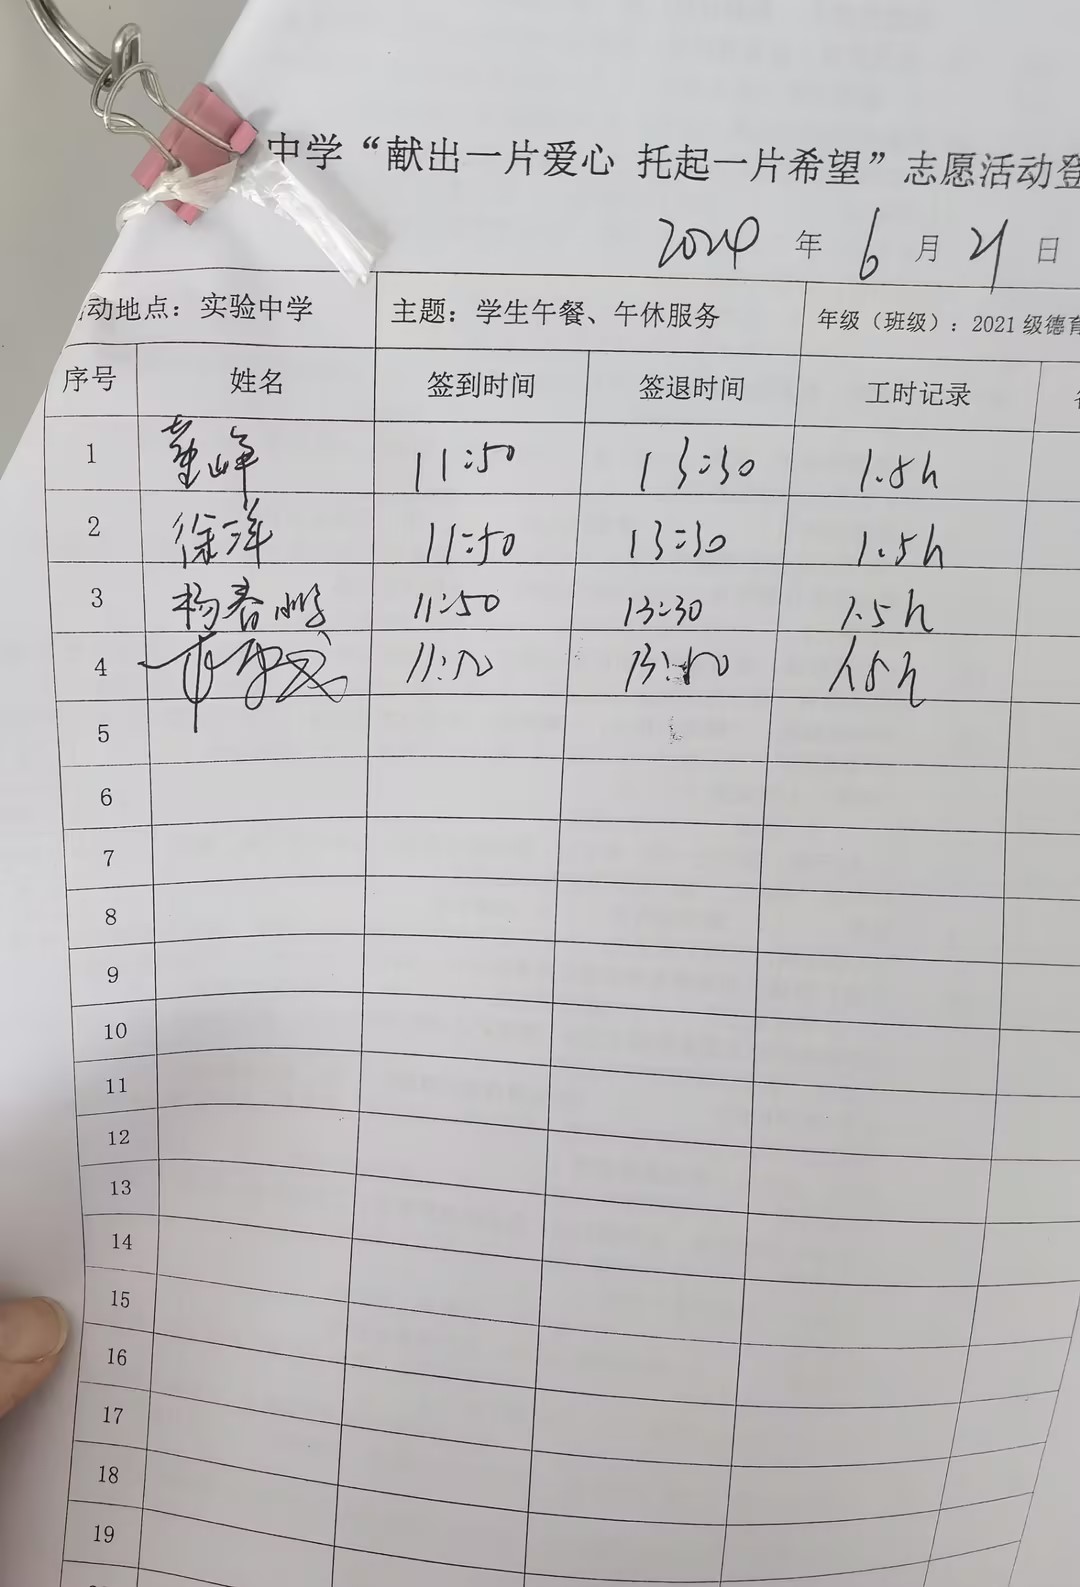 中学“献出一片爱心 托起一片希望”志愿活动登
2024 年 6 月 21 日
动地点：实验中学 主题：学生午餐、午休服务 年级（班级）：2021级德育
序号 姓名 签到时间 签退时间 工时记录
1 董峰 11:50 13:30 1.5h
2 徐洋 11:50 13:30 1.5h
3 杨春鹏 11:50 13:30 1.5h
4 11:50 1.5h
5
6
7
8
9
10
11
12
13
14
15
16
17
18
19